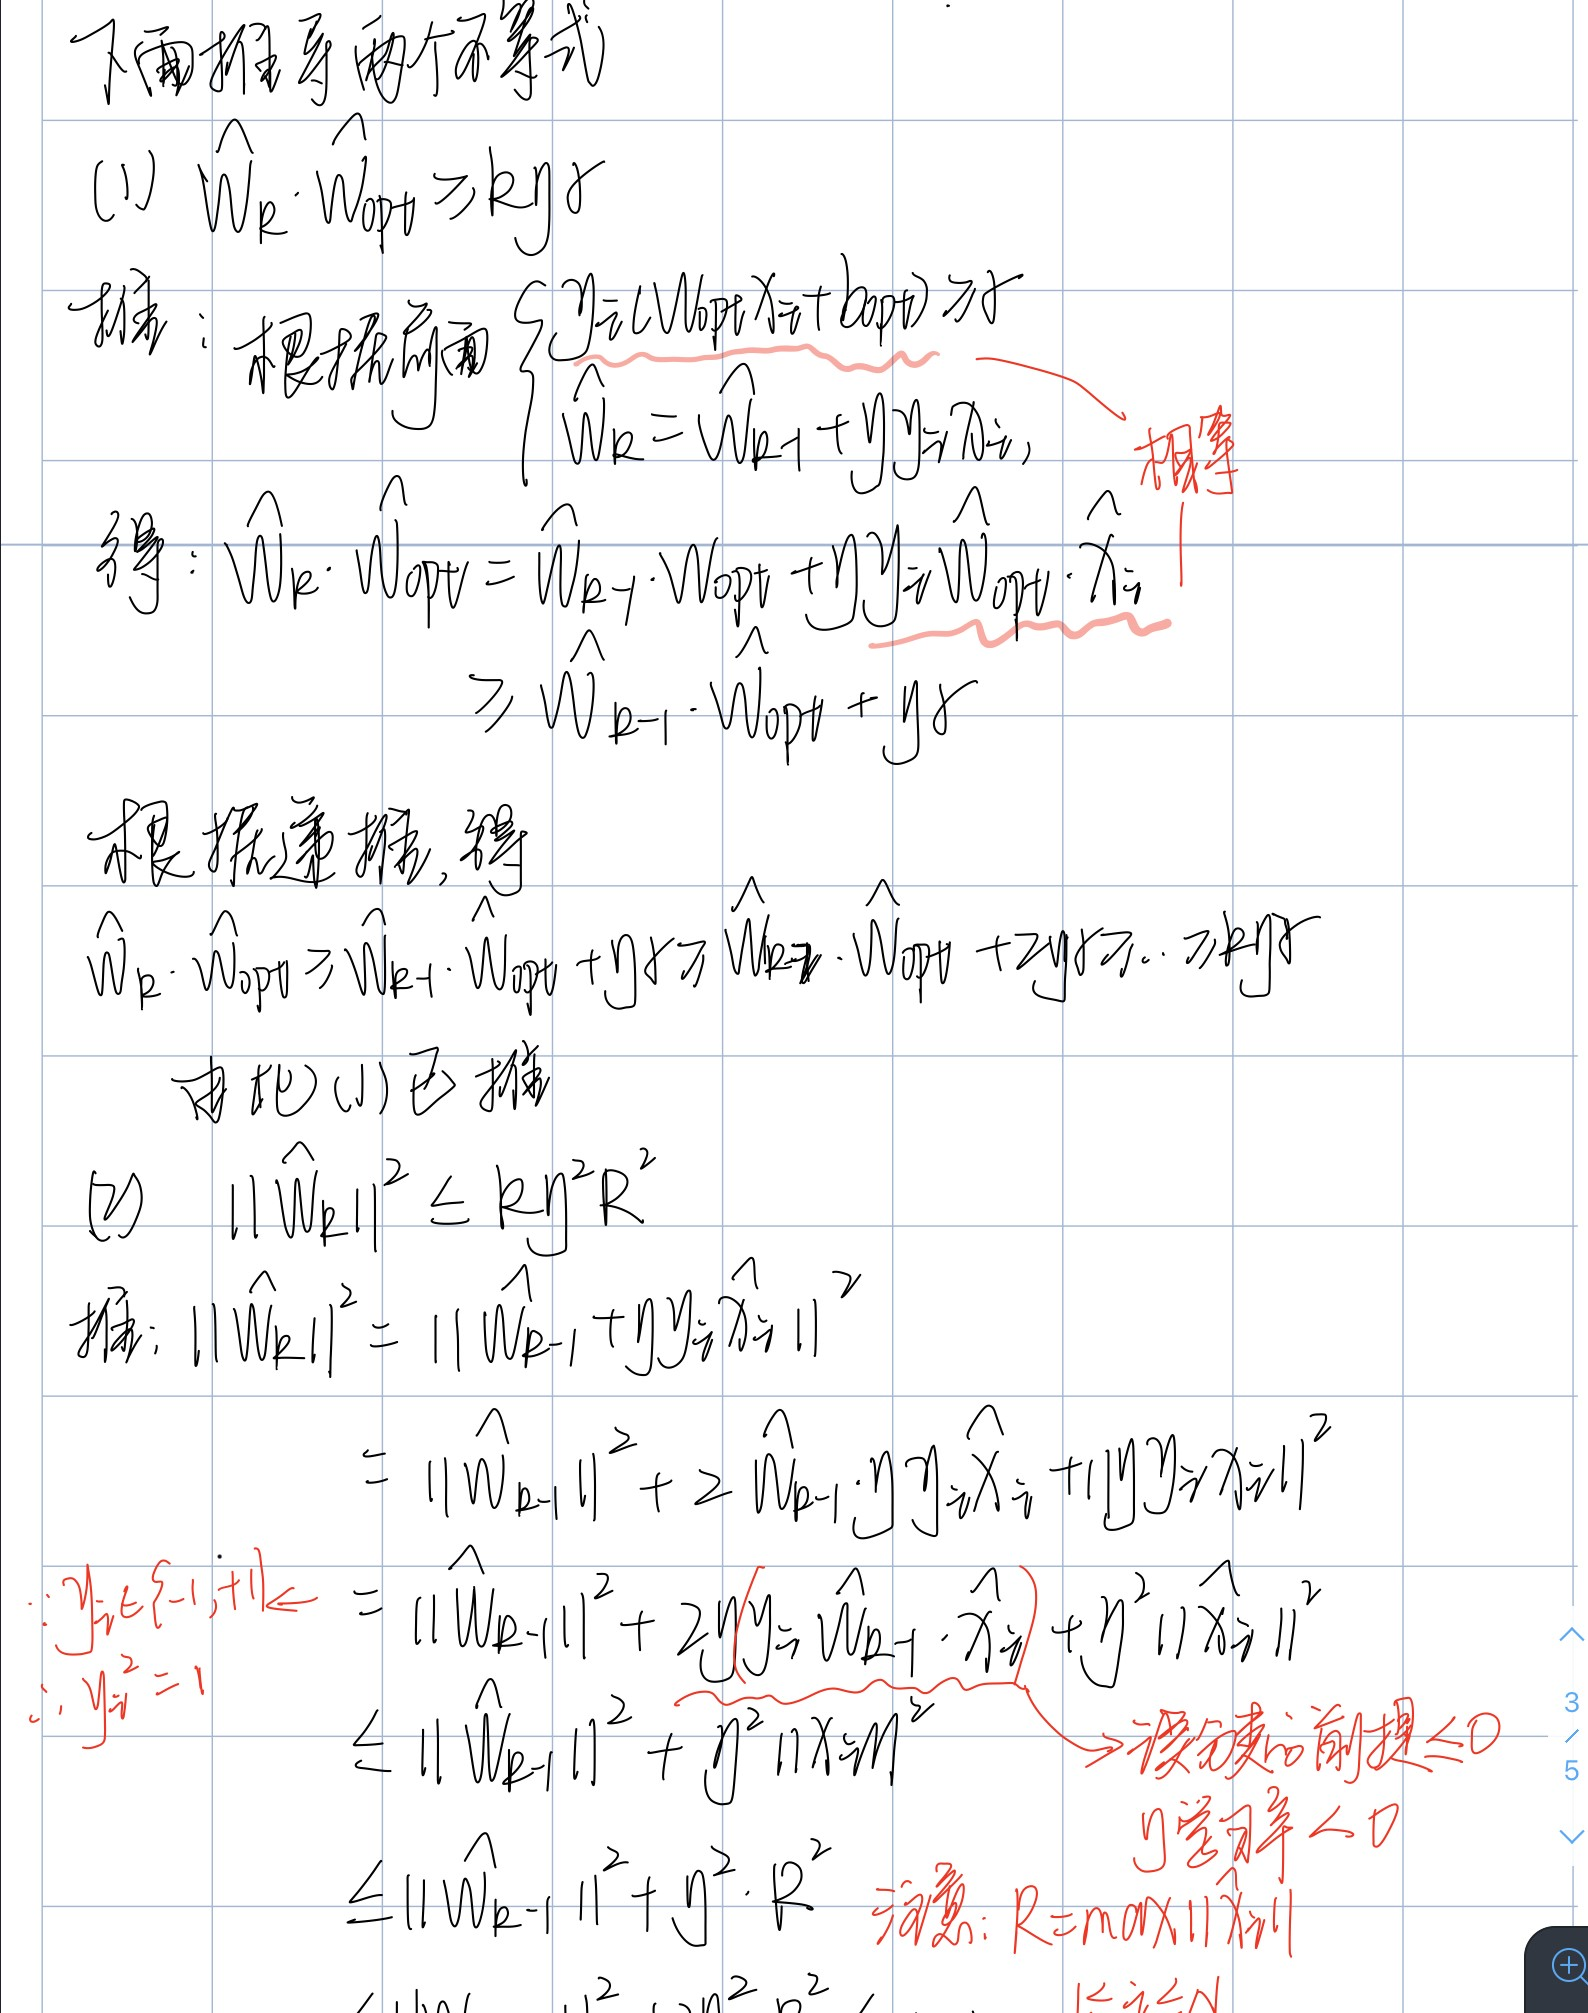 下面推导两个不等式
(1) ŵₖ·ŵopt ≥ kηγ
推：根据前面 { yᵢ(wopt xᵢ + bopt) ≥ γ
ŵₖ = ŵₖ₋₁ + ηyᵢx̂ᵢ,
相等
得：ŵₖ·ŵopt = ŵₖ₋₁·wopt + ηyᵢŵopt·x̂ᵢ
≥ ŵₖ₋₁·ŵopt + ηγ
根据递推,得
ŵₖ·ŵopt ≥ ŵₖ₋₁·ŵopt + ηγ ≥ ŵₖ₋₂·ŵopt + 2ηγ ≥ ... ≥ kηγ
由此(1)已推
(2) ||ŵₖ||² ≤ kη²R²
推：||ŵₖ||² = ||ŵₖ₋₁ + ηyᵢx̂ᵢ||²
= ||ŵₖ₋₁||² + 2ŵₖ₋₁·ηyᵢx̂ᵢ + ||ηyᵢxᵢ||²
∵yᵢ∈{-1,+1} ← = ||ŵₖ₋₁||² + 2η(yᵢŵₖ₋₁·x̂ᵢ) + η²||x̂ᵢ||²
∴yᵢ²=1
≤ ||ŵₖ₋₁||² + η²||xᵢ||² → 误分类的前提≤0
η学习率<0
≤ ||ŵₖ₋₁||² + η²·R² 注意：R=max||x̂ᵢ||
1≤i≤N
3
/
5